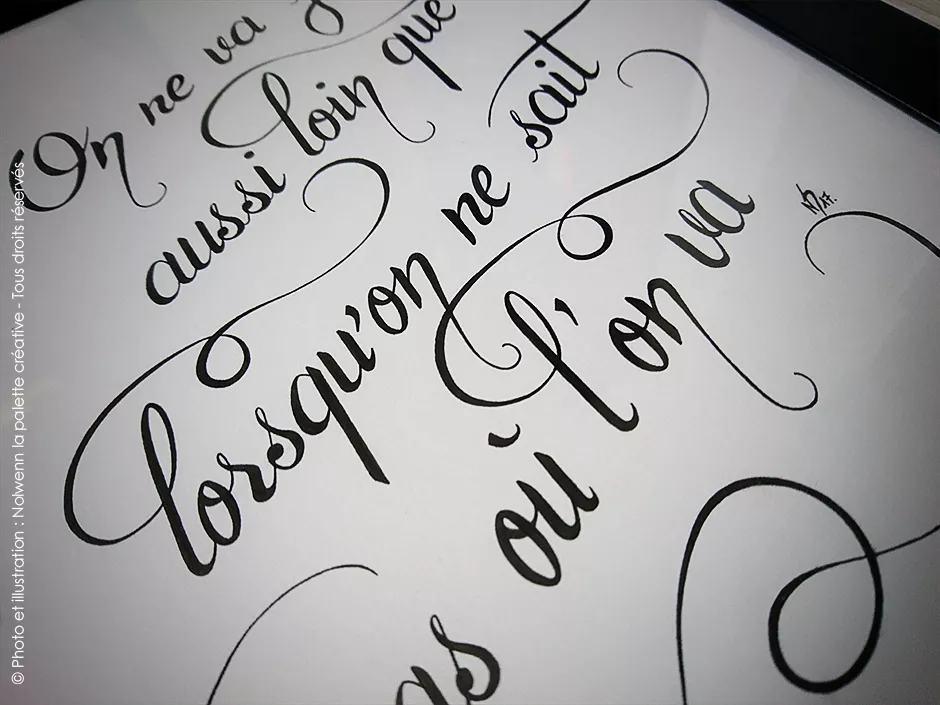 On ne va
aussi loin que
lorsqu'on ne sait
où l'on va
© Photo et illustration : Nolwenn la palette créative - Tous droits réservés